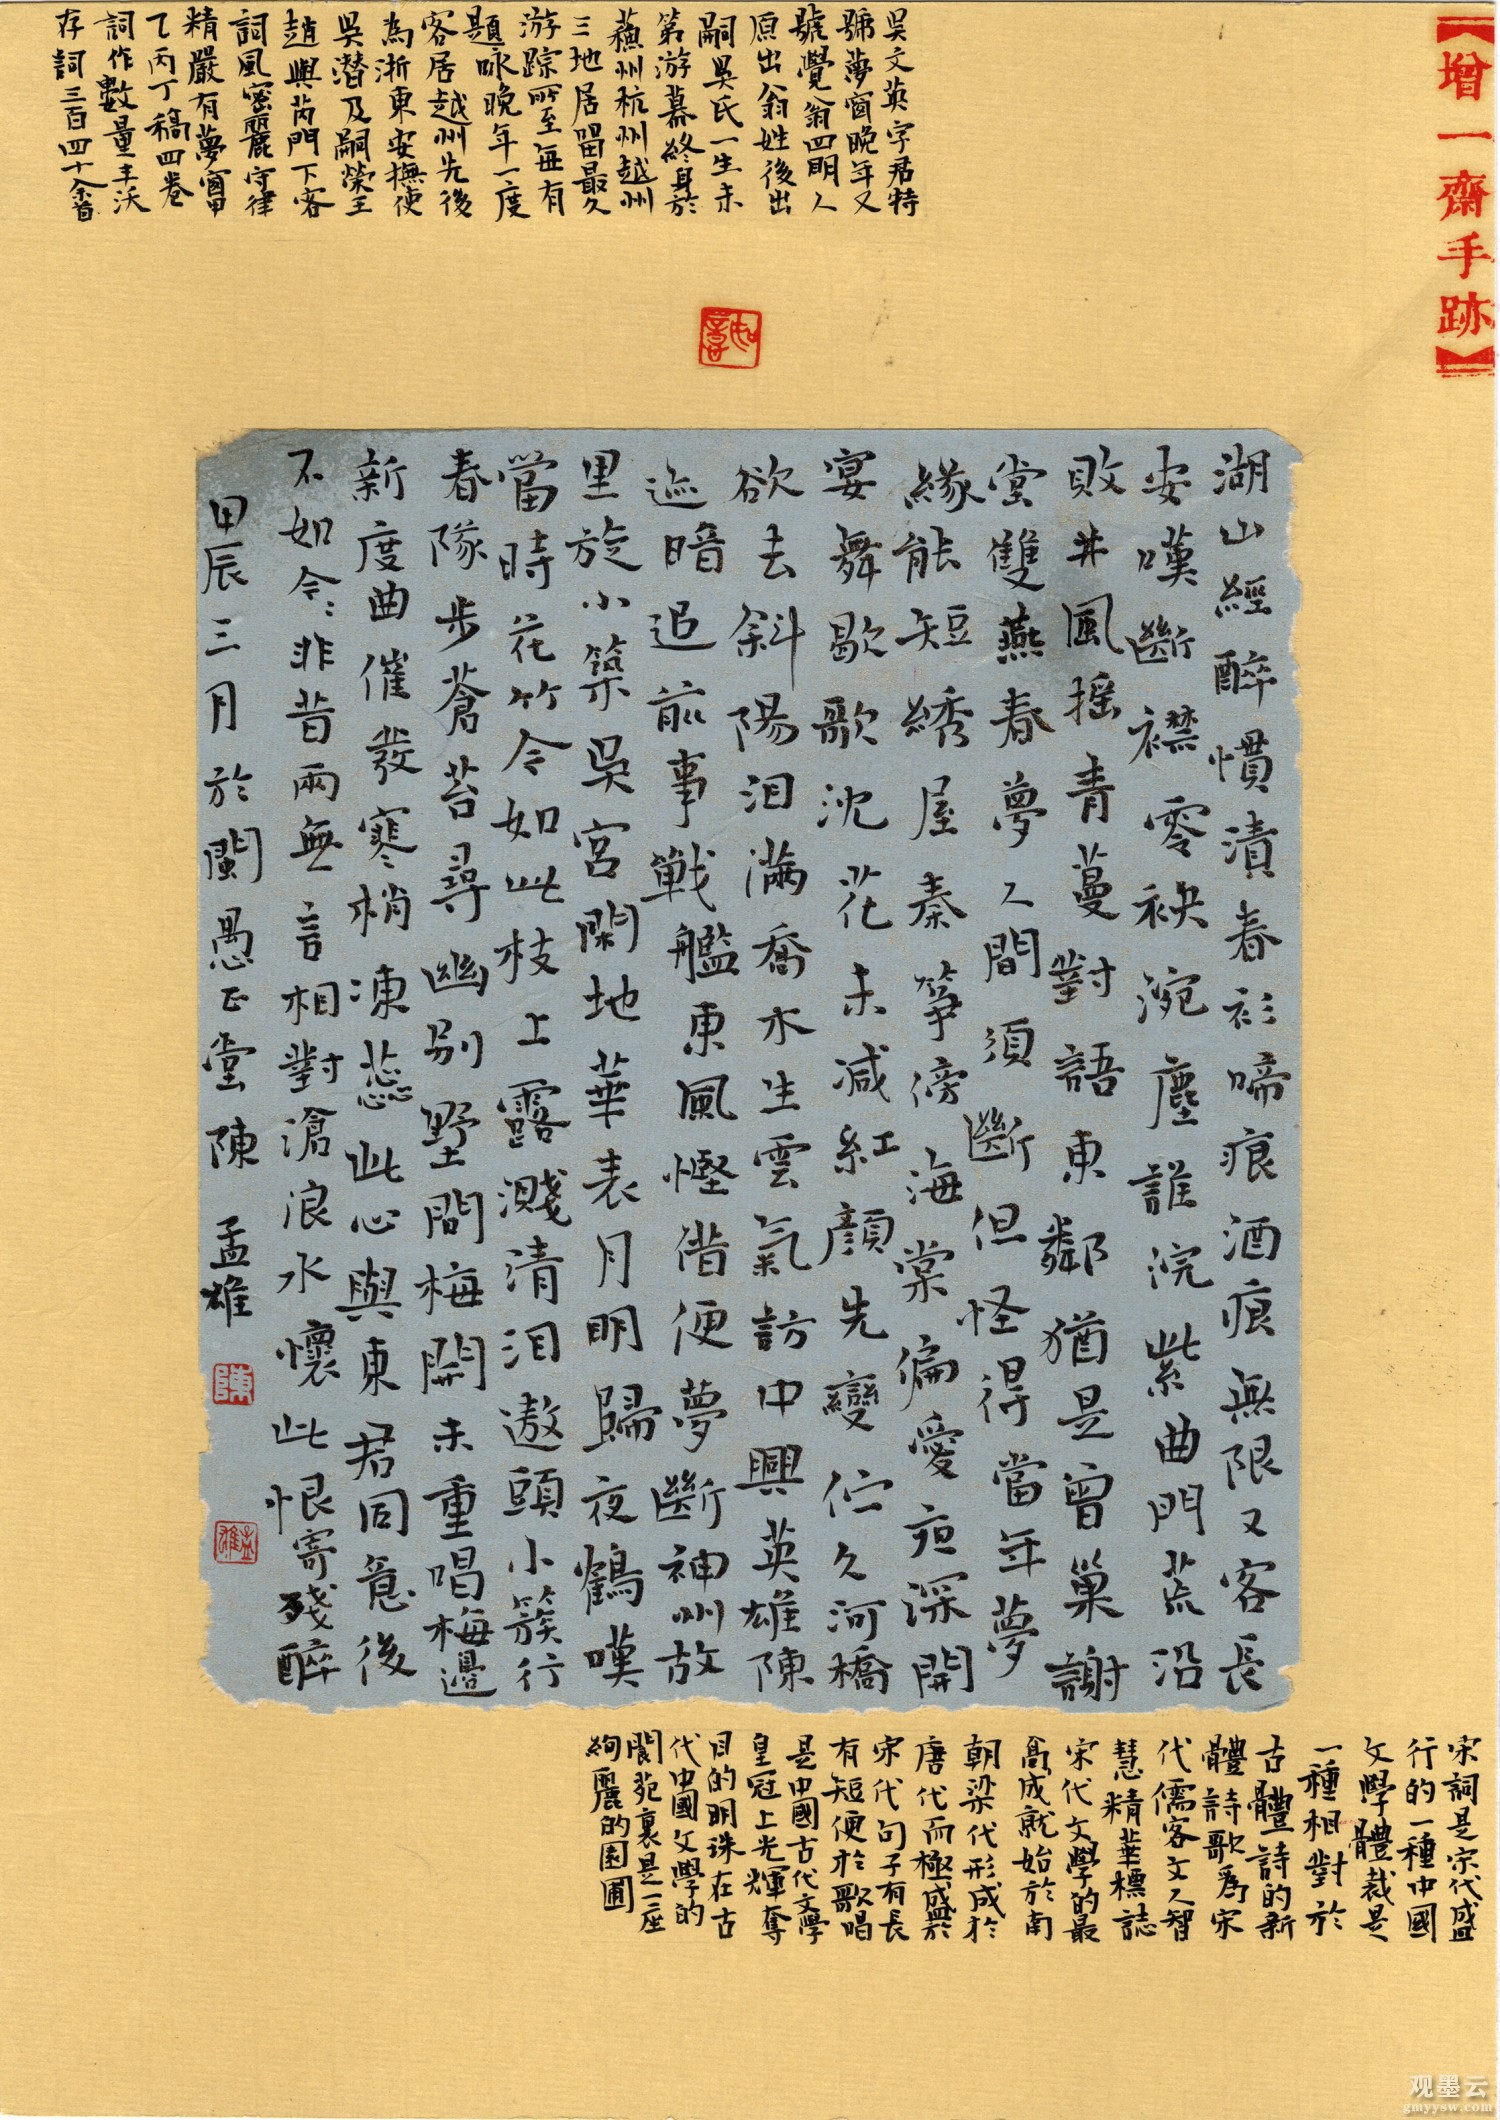 【增一齋手跡】
吳文英字君特
號夢窗晚年又
號覺翁四明人
原出翁姓後出
嗣吳氏一生未
第游幕終身於
蘇州杭州越州
三地居留最久
游踪所至每有
題咏晚年一度
客居越州先後
為浙東安撫使
吳潛及嗣榮王
趙與芮門下客
詞風密麗守律
精嚴有夢窗甲
乙丙丁稿四卷
詞作數量丰沃
存詞三百四十余首
湖山經醉慣漬春衫啼痕酒痕無限又客長
安嘆斷襟零袂涴塵誰浣紫曲門荒沿
敗井風摇青蔓對語東鄰猶是曾巢謝
堂雙燕春夢人間須斷但怪得當年夢
緣能短綉屋秦箏傍海棠偏愛夜深開
宴舞歇歌沈花未减紅顔先變伫久河橋
欲去斜陽泪滿喬木生雲氣訪中興英雄陳
迹暗追前事戰艦東風慳借便夢斷神州故
里旋小築吳宫閑地華表月明歸夜鶴嘆
當時花竹今如此枝上露濺清泪遨頭小簇行
春隊步蒼苔尋幽别墅問梅開未重唱梅邊
新度曲催發寒梢凍蕊此心與東君同意後
不如今今非昔兩無言相對滄浪水懷此恨寄殘醉
甲辰三月於閩愚正堂陳孟雄
宋詞是宋代盛
行的一種中國
文學體裁是
一種相對於
古體詩的新
體詩歌爲宋
代儒客文人智
慧精華標誌
宋代文學的最
高成就始於南
朝梁代形成於
唐代而極盛於
宋代句子有長
有短便於歌唱
是中國古代文學
皇冠上光輝奪
目的明珠在古
代中國文學的
閬苑裏是一座
絢麗的園圃
观墨云
gmyysw.com